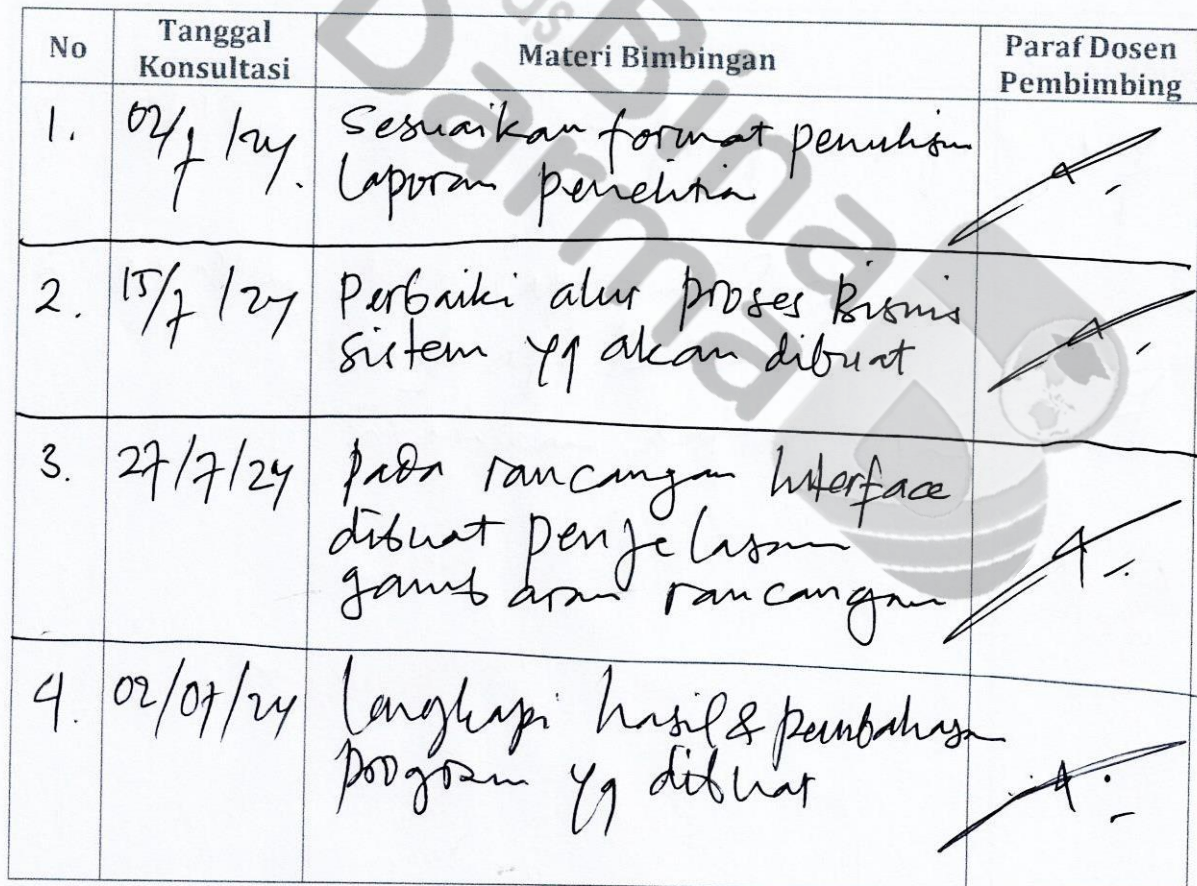 No
Tanggal Konsultasi
Materi Bimbingan
Paraf Dosen Pembimbing
1. 02/7/24 Sesuaikan format penulisan
laporan penelitian
2. 15/7/24 Perbaiki alur proses Bisnis
sistem yg akan dibuat
3. 27/7/24 pada rancangan Interface
dibuat penjelasan
gambaran rancangan
4. 02/07/24 lengkapi hasil & pembahasan
program yg dibuat
Bina
Darma